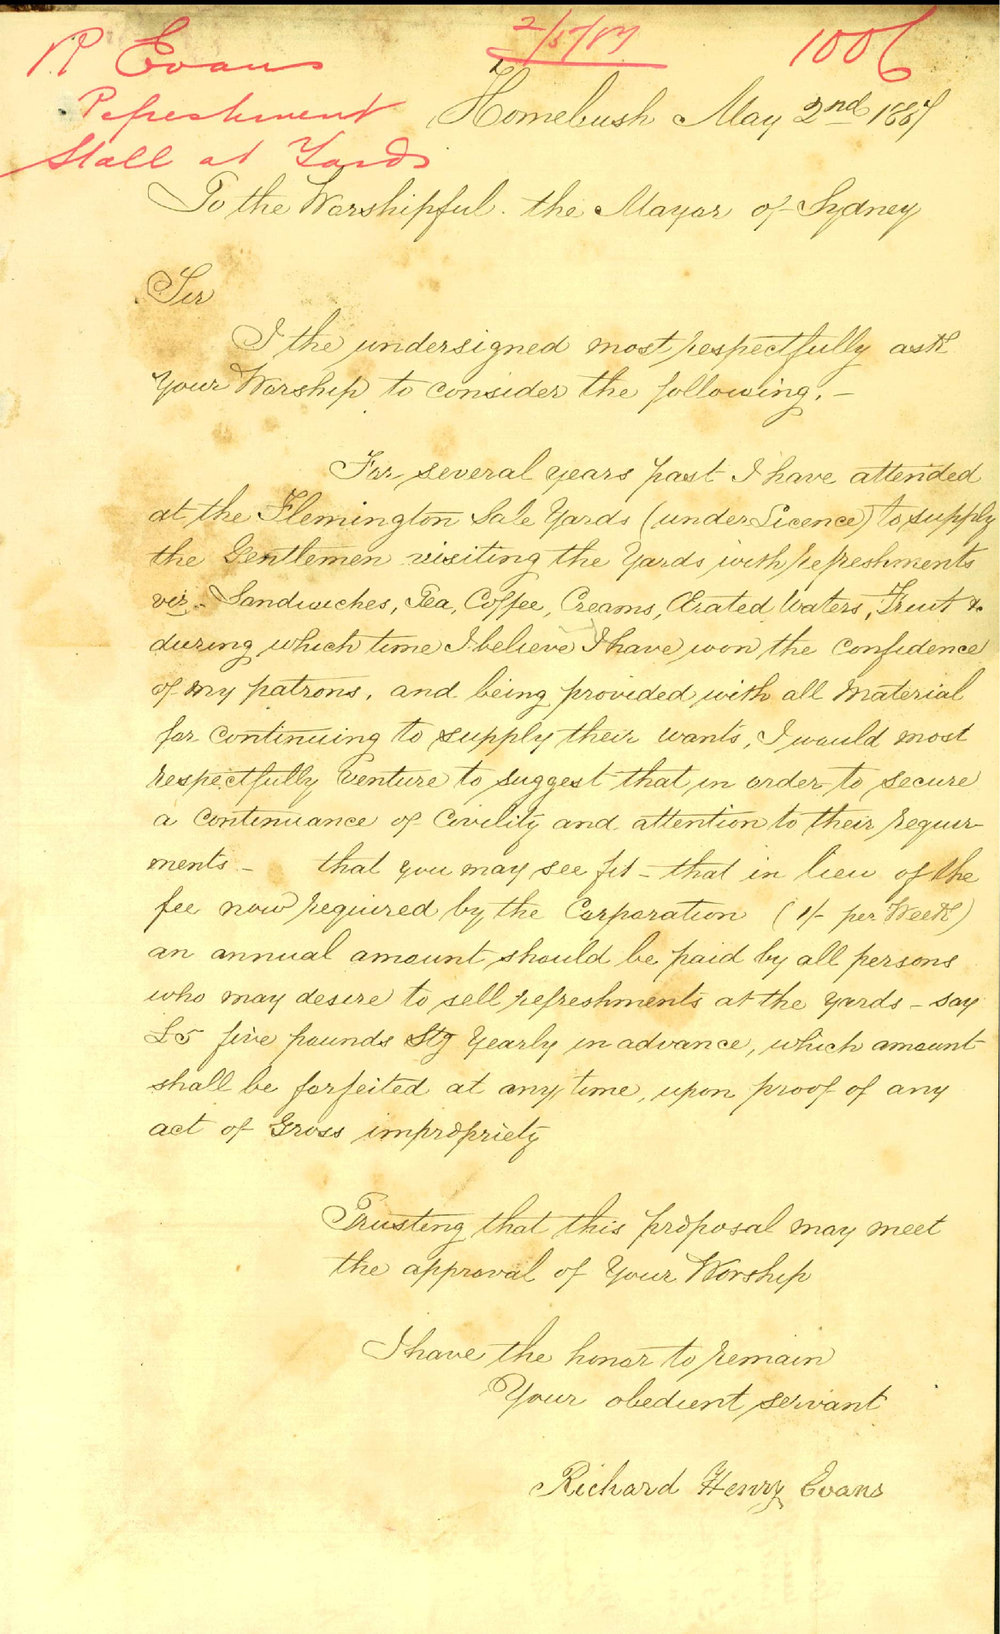 R Evans
Refreshment
Stall at Yards
2/5/87
1006
Homebush May 2nd 1887
To the Worshipful. the Mayor of Sydney
Sir
I the undersigned most respectfully ask
Your Worship to consider the following. -
For several years past I have attended
at the Flemington Sale Yards (under Licence) to supply
the Gentlemen visiting the Yards with refreshments
viz - Sandwiches, Tea, Coffee, Creams, Ærated Waters, Fruit &c
during which time I believe I have won the confidence
of my patrons, and being provided with all Material
for continuing to supply their wants, I would most
respectfully venture to suggest that in order to secure
a continuance of Civility and attention to their requir-
ments - that you may see fit - that in lieu of the
fee now required by the Corporation (1/- per Week)
an annual amount should be paid by all persons
who may desire to sell refreshments at the yards - say
£5 five pounds Stg Yearly in advance, which amount
shall be forfeited at any time, upon proof of any
act of Gross impropriety
Trusting that this proposal may meet
the approval of Your Worship
I have the honor to remain
Your obedient servant
Richard Henry Evans